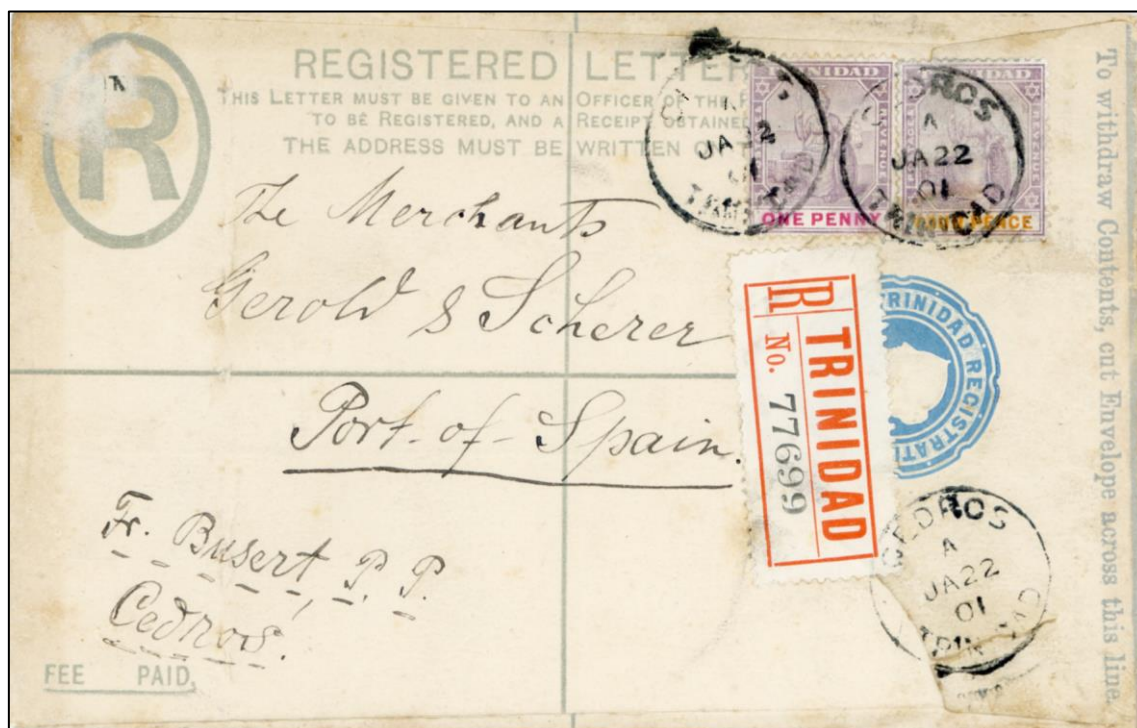 R
REGISTERED LETTER
THIS LETTER MUST BE GIVEN TO AN OFFICER OF THE
TO BE REGISTERED, AND A RECEIPT OBTAINED
THE ADDRESS MUST BE WRITTEN
TRINIDAD
ONE PENNY
TRINIDAD
PENCE
JA 22
01
TRINIDAD
A
JA22
01
TRINIDAD
The Merchants
Gerold & Scherer
Port-of-Spain.
R TRINIDAD
No. 77699
TRINIDAD REGISTRATI
Fr. Busert, P. P.
Cedros.
CEDROS
A
JA22
01
FEE PAID.
To withdraw Contents, cut Envelope across this line.